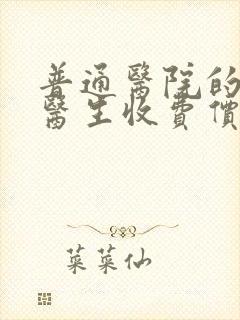 普通醫院的
醫生收費價
菜菜仙